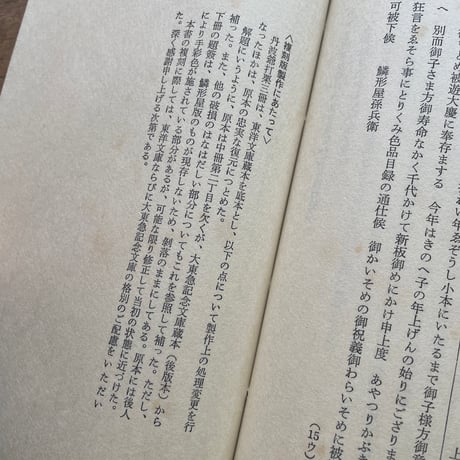 上
年ゑぞうし小本にいたるまで御子様方御意
め被遊大慶に奉存まする　今年はきのへ子の年上げんの始りにござりま
へ　別而御子さま方御寿命なかく千代かけて新板御めにかけ申上度　あやつりかぶき
狂言をゑそら事にとりくみ色品目録の通仕候　御かいそめの御祝義御わらいそめに被
可被下候　鱗形屋孫兵衛
（15ウ）
〈複刻版製作にあたって〉
丹波爺打栗三冊は、東洋文庫蔵本を底本とし、以下の点について製作上の処理変更を行
なったほかは、原本の忠実な復元につとめた。
解題にいうように、原本は中冊第二丁目を欠くが、大東急記念文庫蔵本（後版本）から
補った。また、他の破損のはなはだしい部分についてもこれを参照して補った。ただし、
下冊の題簽は、鱗形屋版のものが現存しないため、剥落のままにしてある。原本には後人
により手彩色が施されている部分があるが、可能な限り修正して当初の状態に近づけた。
本書の複刻に際しては、東洋文庫ならびに大東急記念文庫の格別のご配慮をいただい
た。深く感謝申し上げる次第である。